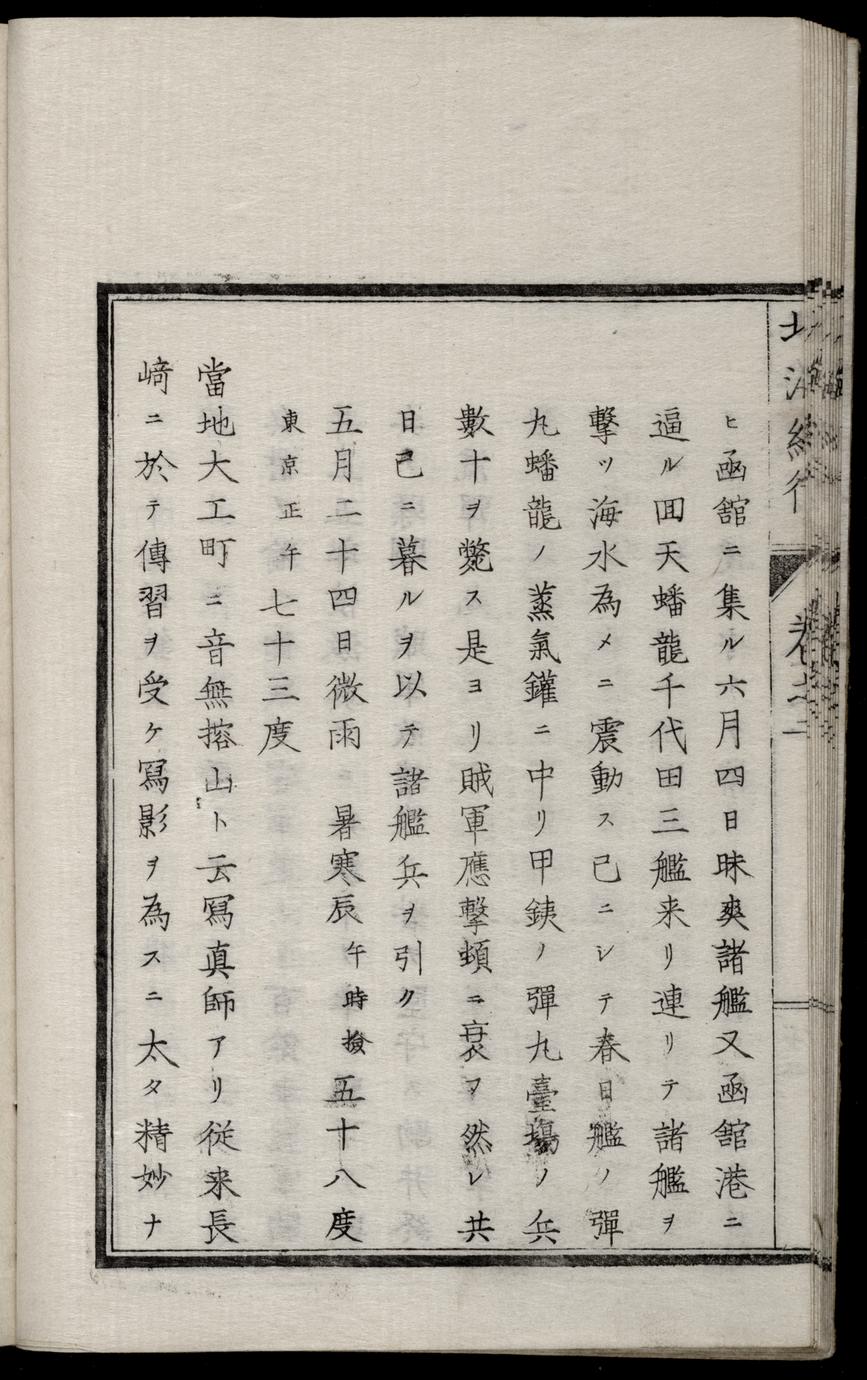 ヒ函舘ニ集ル六月四日昧爽諸艦又函舘港ニ
逼ル囬天蟠龍千代田三艦来リ連リテ諸艦ヲ
撃ツ海水為メニ震動ス已ニシテ春日艦ノ彈
丸蟠龍ノ蒸氣鑵ニ中リ甲銕ノ彈丸臺塲ノ兵
數十ヲ斃ス是ヨリ賊軍應撃頻ニ衰フ然レ共
日已ニ暮ルヲ以テ諸艦兵ヲ引ク
五月二十四日微雨 暑寒辰午時撿五十八度
東京正午七十三度
當地大工町ニ音無榕山ト云冩真師アリ従来長
﨑ニ於テ傳習ヲ受ケ冩影ヲ為スニ太タ精妙ナ